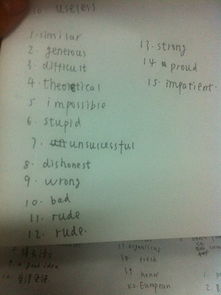 useless
1. similar
2. generous
3. difficult
4. theoretical
5 impossible
6. stupid
7. unsuccessful
8. dishonest
9. wrong
10. bad
11. rude
12. rude.
13. strong
14. proud
15. impatient.
European